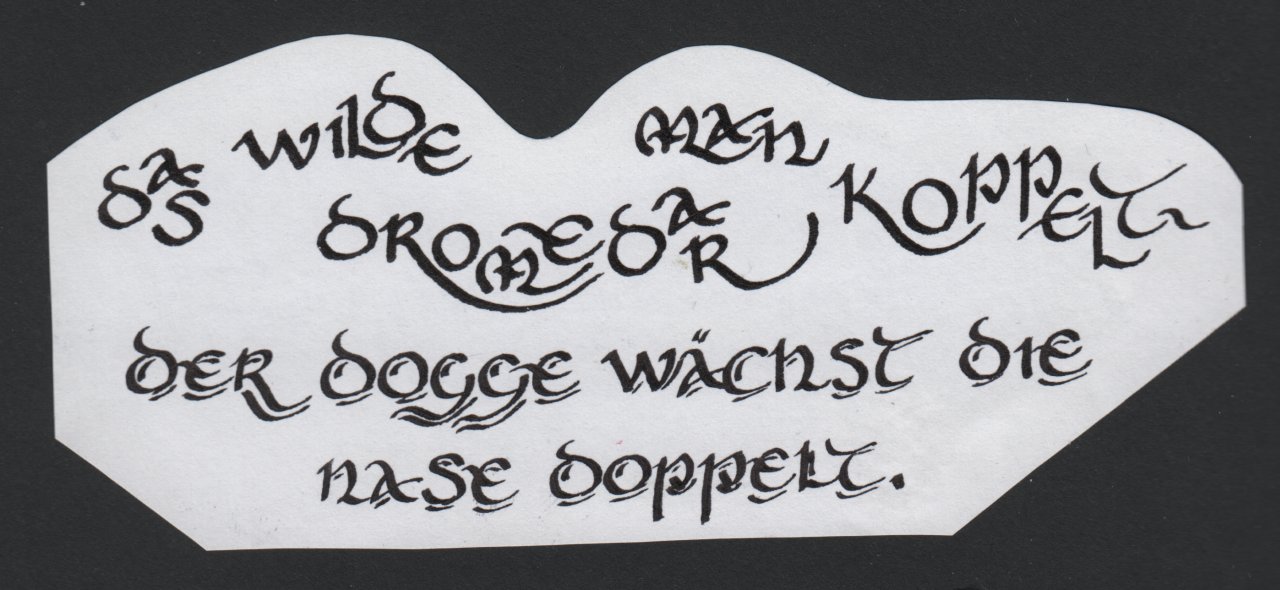 das wilde dromedar man koppelt~
der dogge wächst die
nase doppelt.